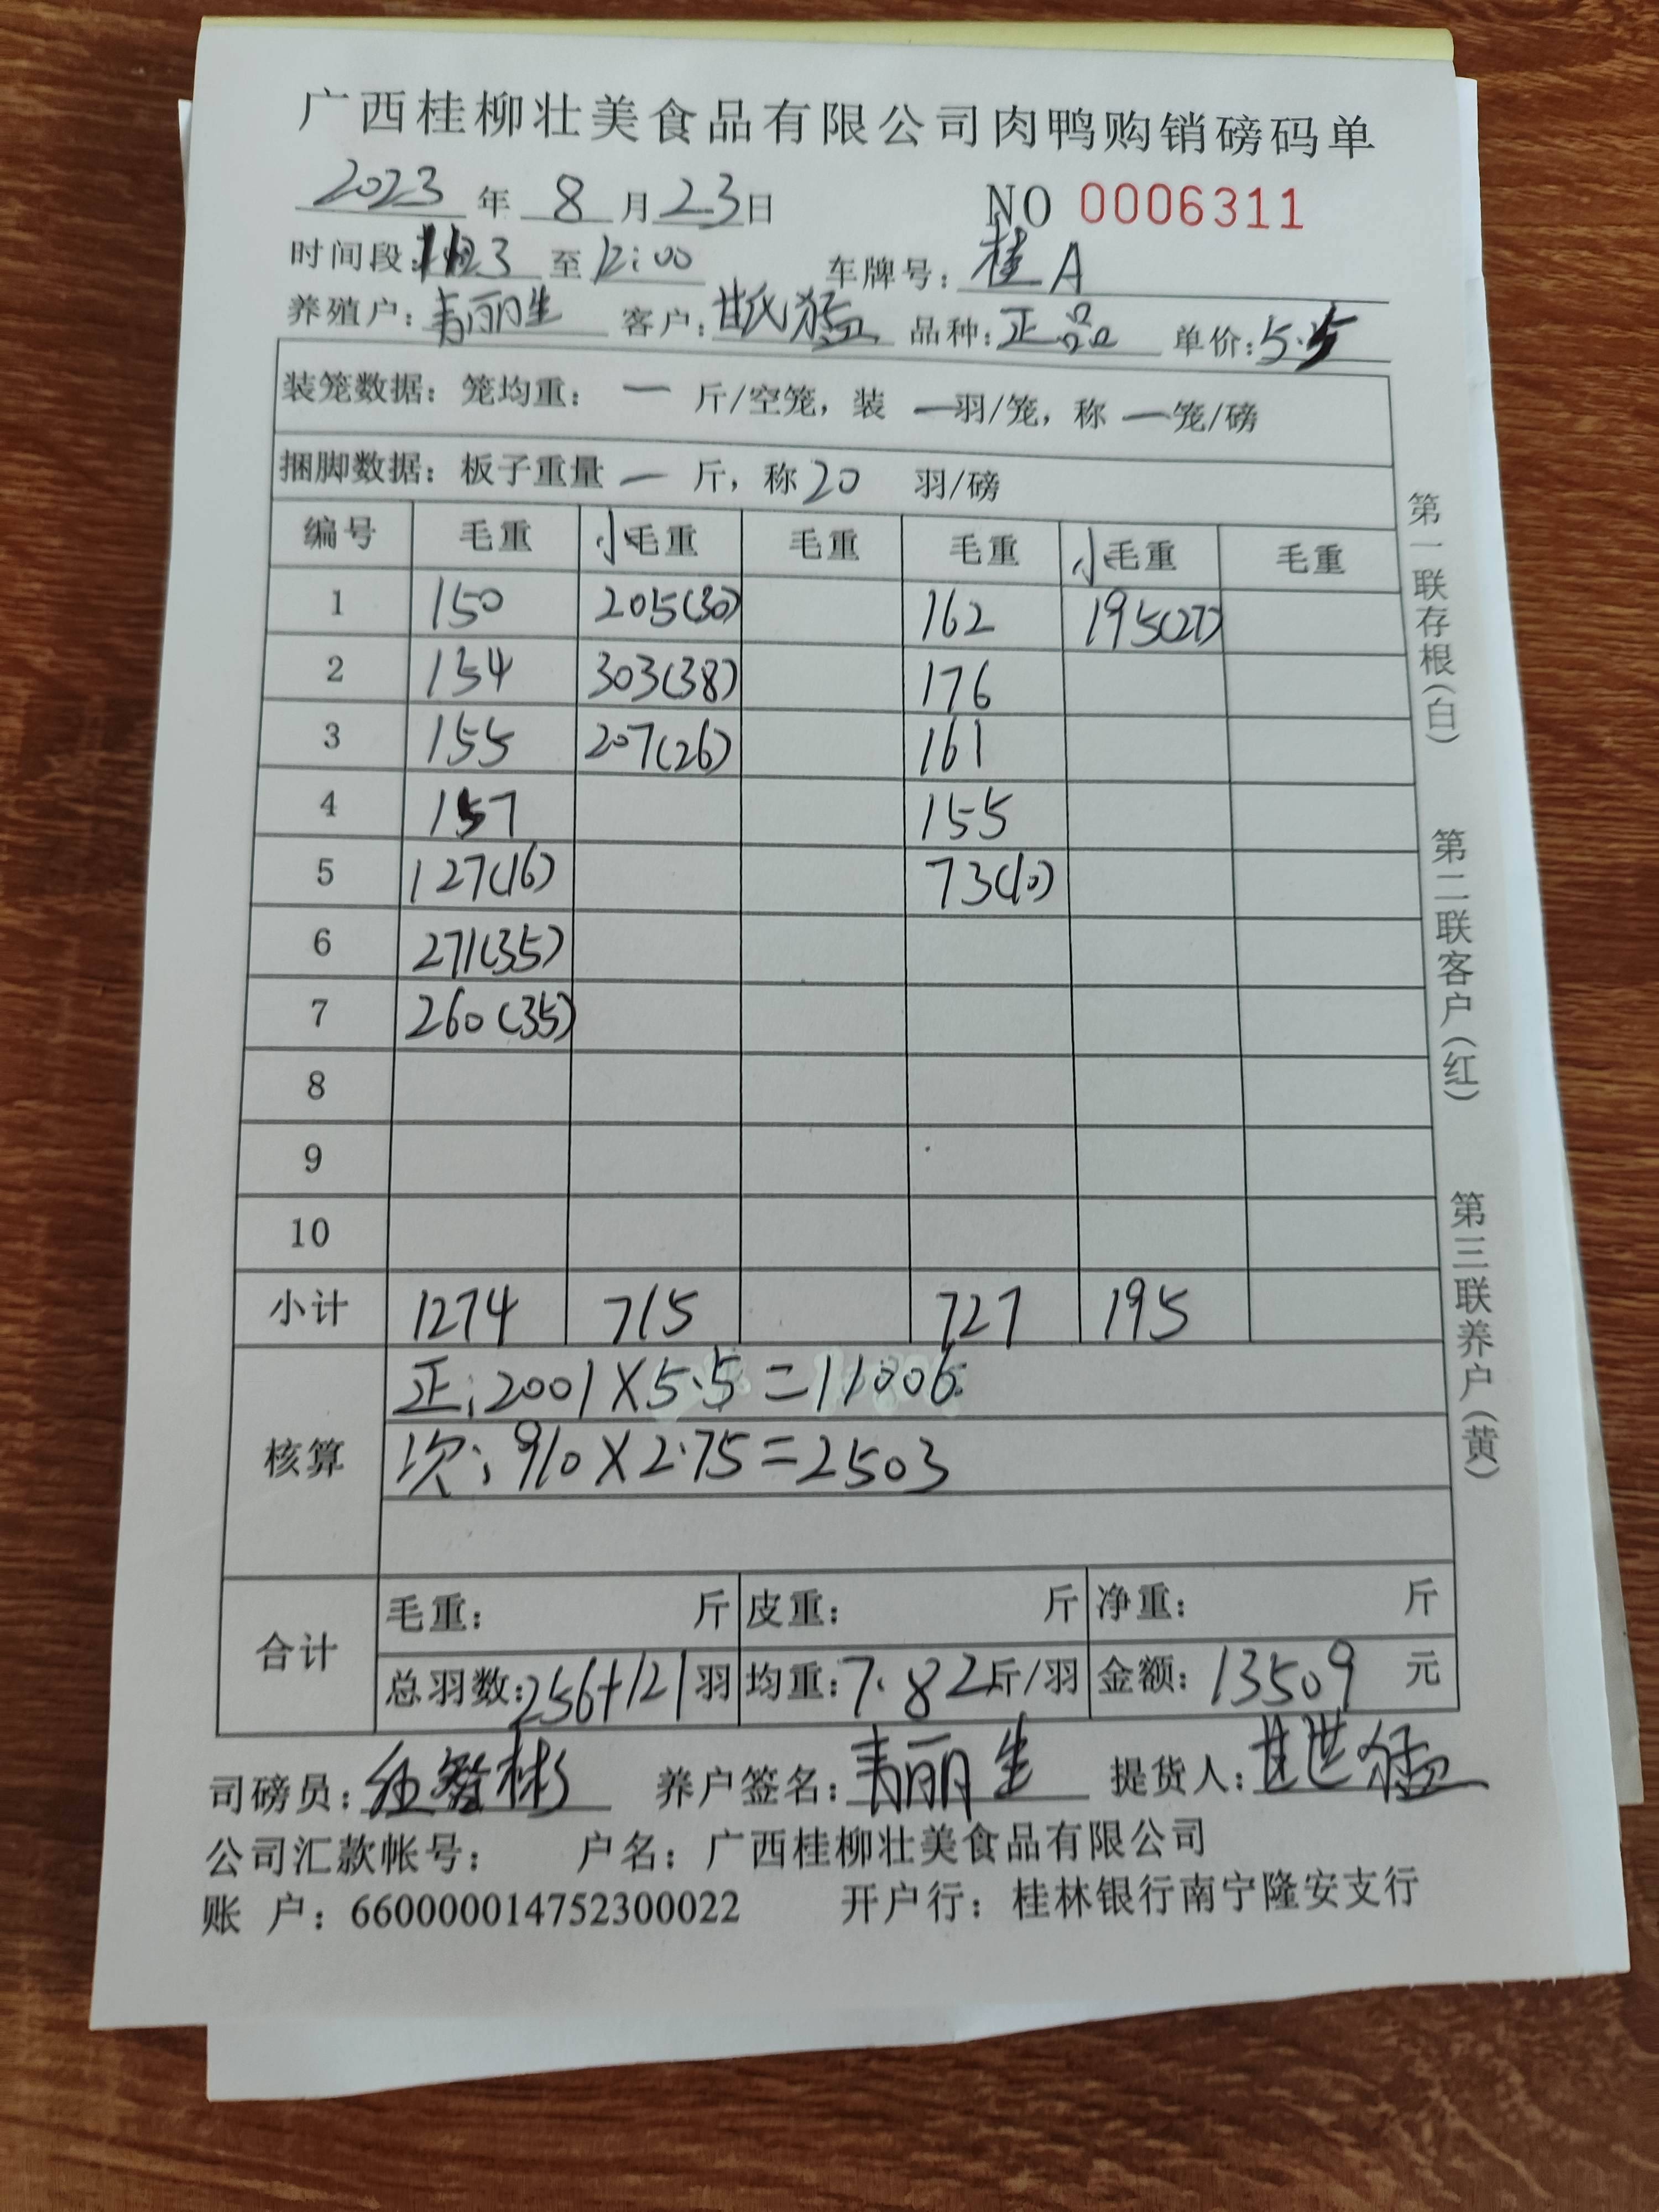 广西桂柳壮美食品有限公司肉鸭购销磅码单
2023 年 8 月 23 日 NO 0006311
时间段: 至 12:00 车牌号: 桂A
养殖户: 韦丽生 客户: 甘氏猛 品种: 正品 单价: 5.5
装笼数据: 笼均重: 一 斤/空笼, 装 一 羽/笼, 称 一 笼/磅
捆脚数据: 板子重量 一 斤, 称 20 羽/磅
编号 毛重 小毛重 毛重 毛重 小毛重 毛重
1 150 205(30) 162 195(27)
2 154 303(38) 176
3 155 207(26) 161
4 157 155
5 127(16) 73(10)
6 271(35)
7 260(35)
8
9
10
小计 1274 715 727 195
核算 正: 2001×5.5=11006
次: 910×2.75=2503
合计 毛重: 斤 皮重: 斤 净重: 斤
总羽数: 256+121 羽 均重: 7.82 斤/羽 金额: 13509 元
司磅员: 养户签名: 韦丽生 提货人: 甘世猛
公司汇款帐号: 户名: 广西桂柳壮美食品有限公司
账 户: 660000014752300022 开户行: 桂林银行南宁隆安支行
第一联存根(白)
第二联客户(红)
第三联养户(黄)